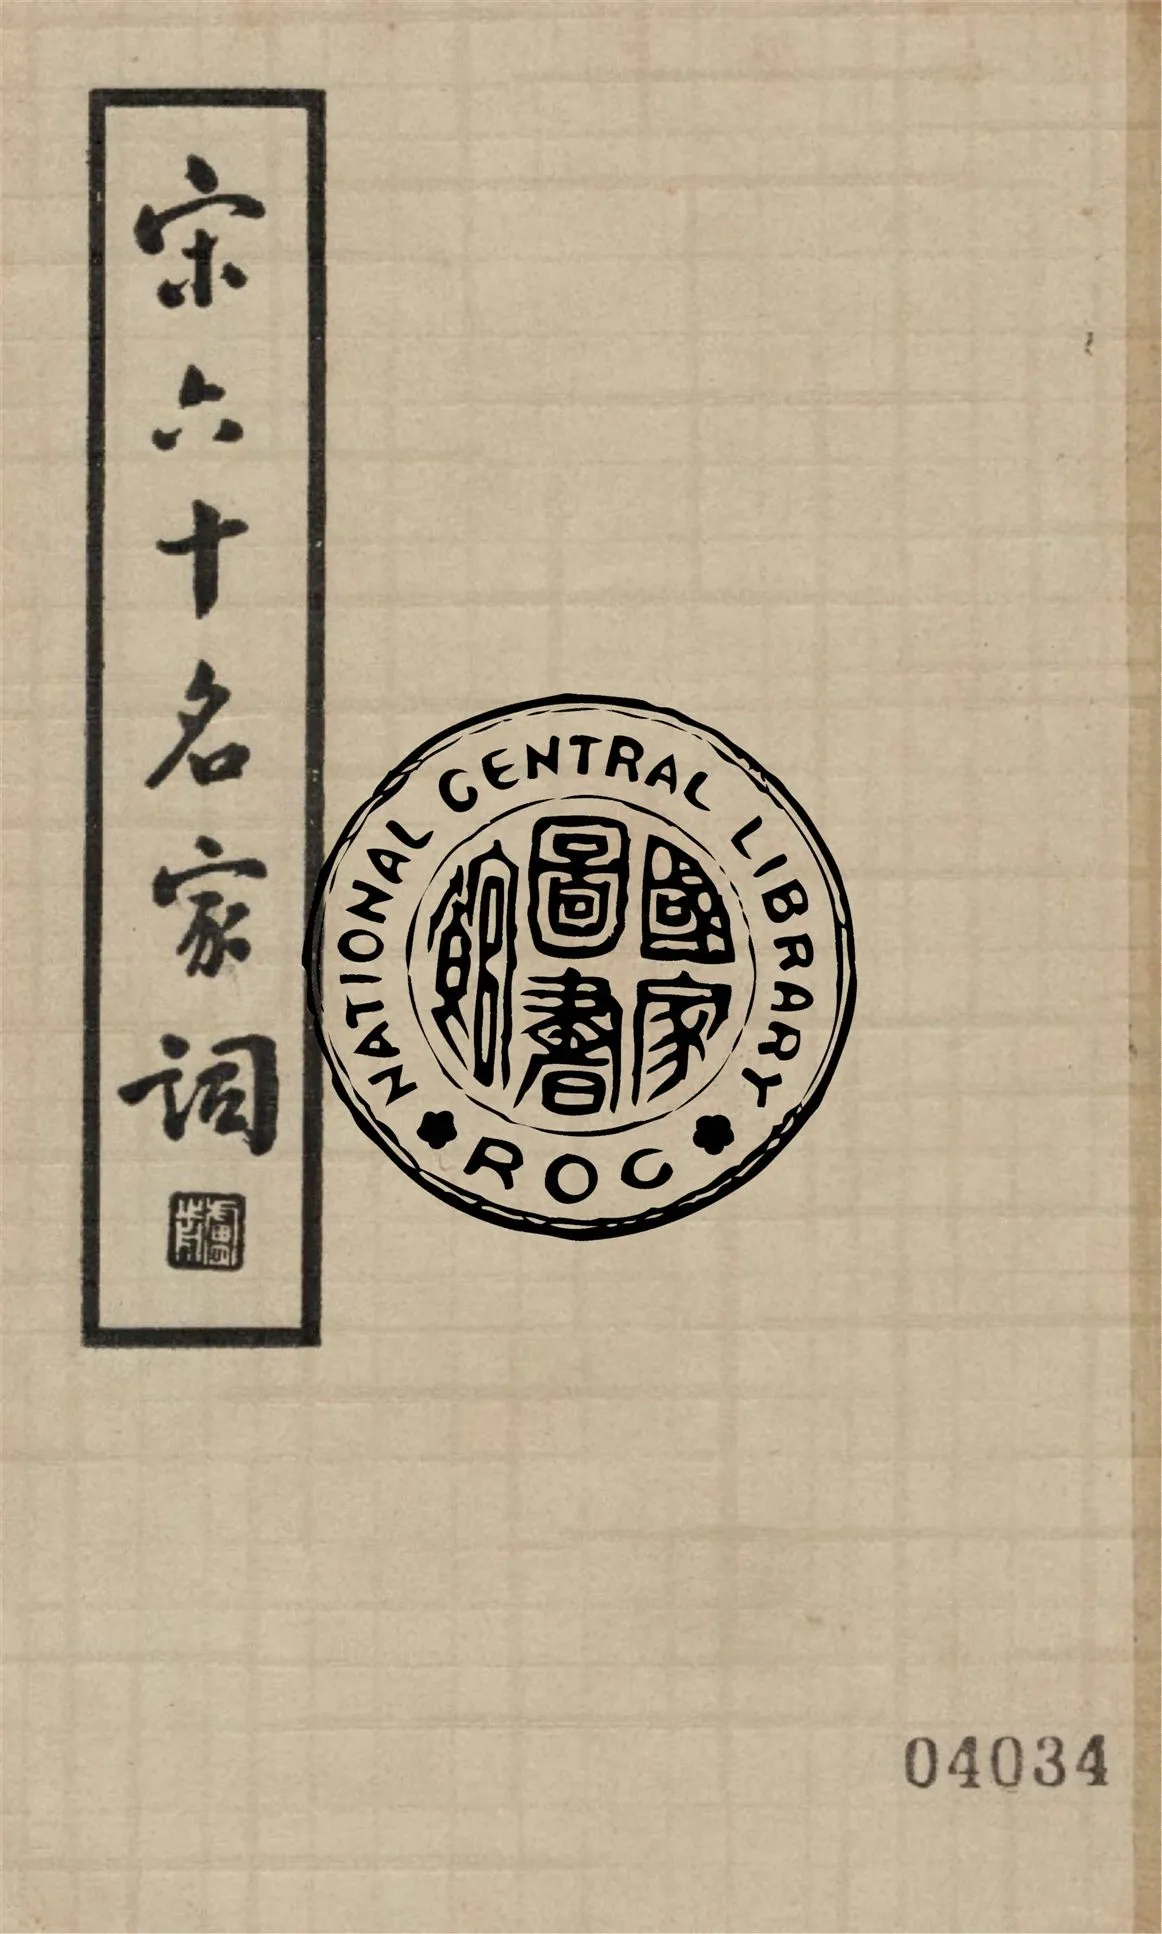 宋六十名家詞
NATIONAL CENTRAL LIBRARY
國家
圖書
館
ROC
04034